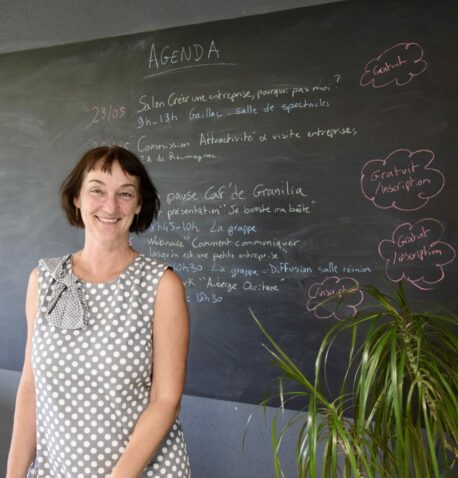 AGENDA
23/05 Salon Créer une entreprise, pourquoi pas moi ?
9h-13h Gaillac - salle de spectacles
Gratuit
Commission Attractivité & visite entreprises
ZA de Rieumagnac
pause Caf' de Granilia
présentation "Je booste ma boîte"
h45-10h La grappe
Gratuit
/inscription
Webinaire "Comment communiquer
lorsqu'on est une petite entreprise"
h30 La grappe - Diffusion salle réunion
Gratuit
/inscription
"Auberge Occitane"
18h30
/inscription